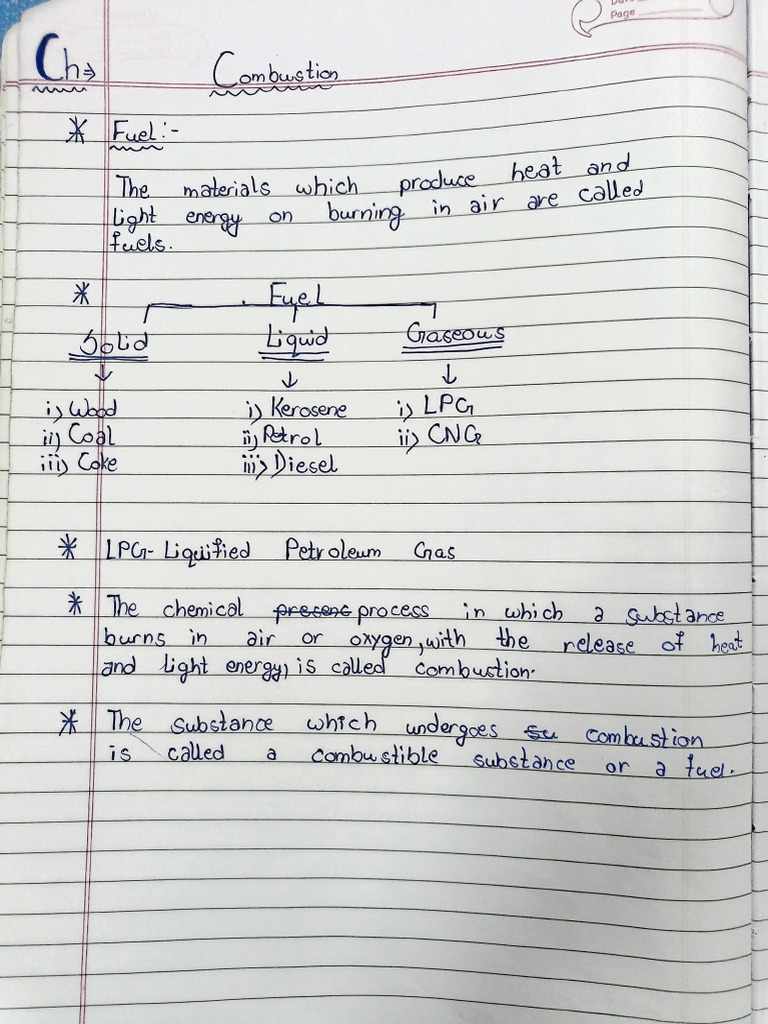 Page
Ch⇒ Combustion
* Fuel:-
The materials which produce heat and
light energy on burning in air are called
fuels.
* Fuel
Solid Liquid Gaseous
i) Wood i) Kerosene i) LPG
ii) Coal ii) Petrol ii) CNG
iii) Coke iii) Diesel
* LPG- Liquified Petroleum Gas
* The chemical present process in which a substance
burns in air or oxygen, with the release of heat
and light energy, is called combustion.
* The substance which undergoes su combustion
is called a combustible substance or a fuel.